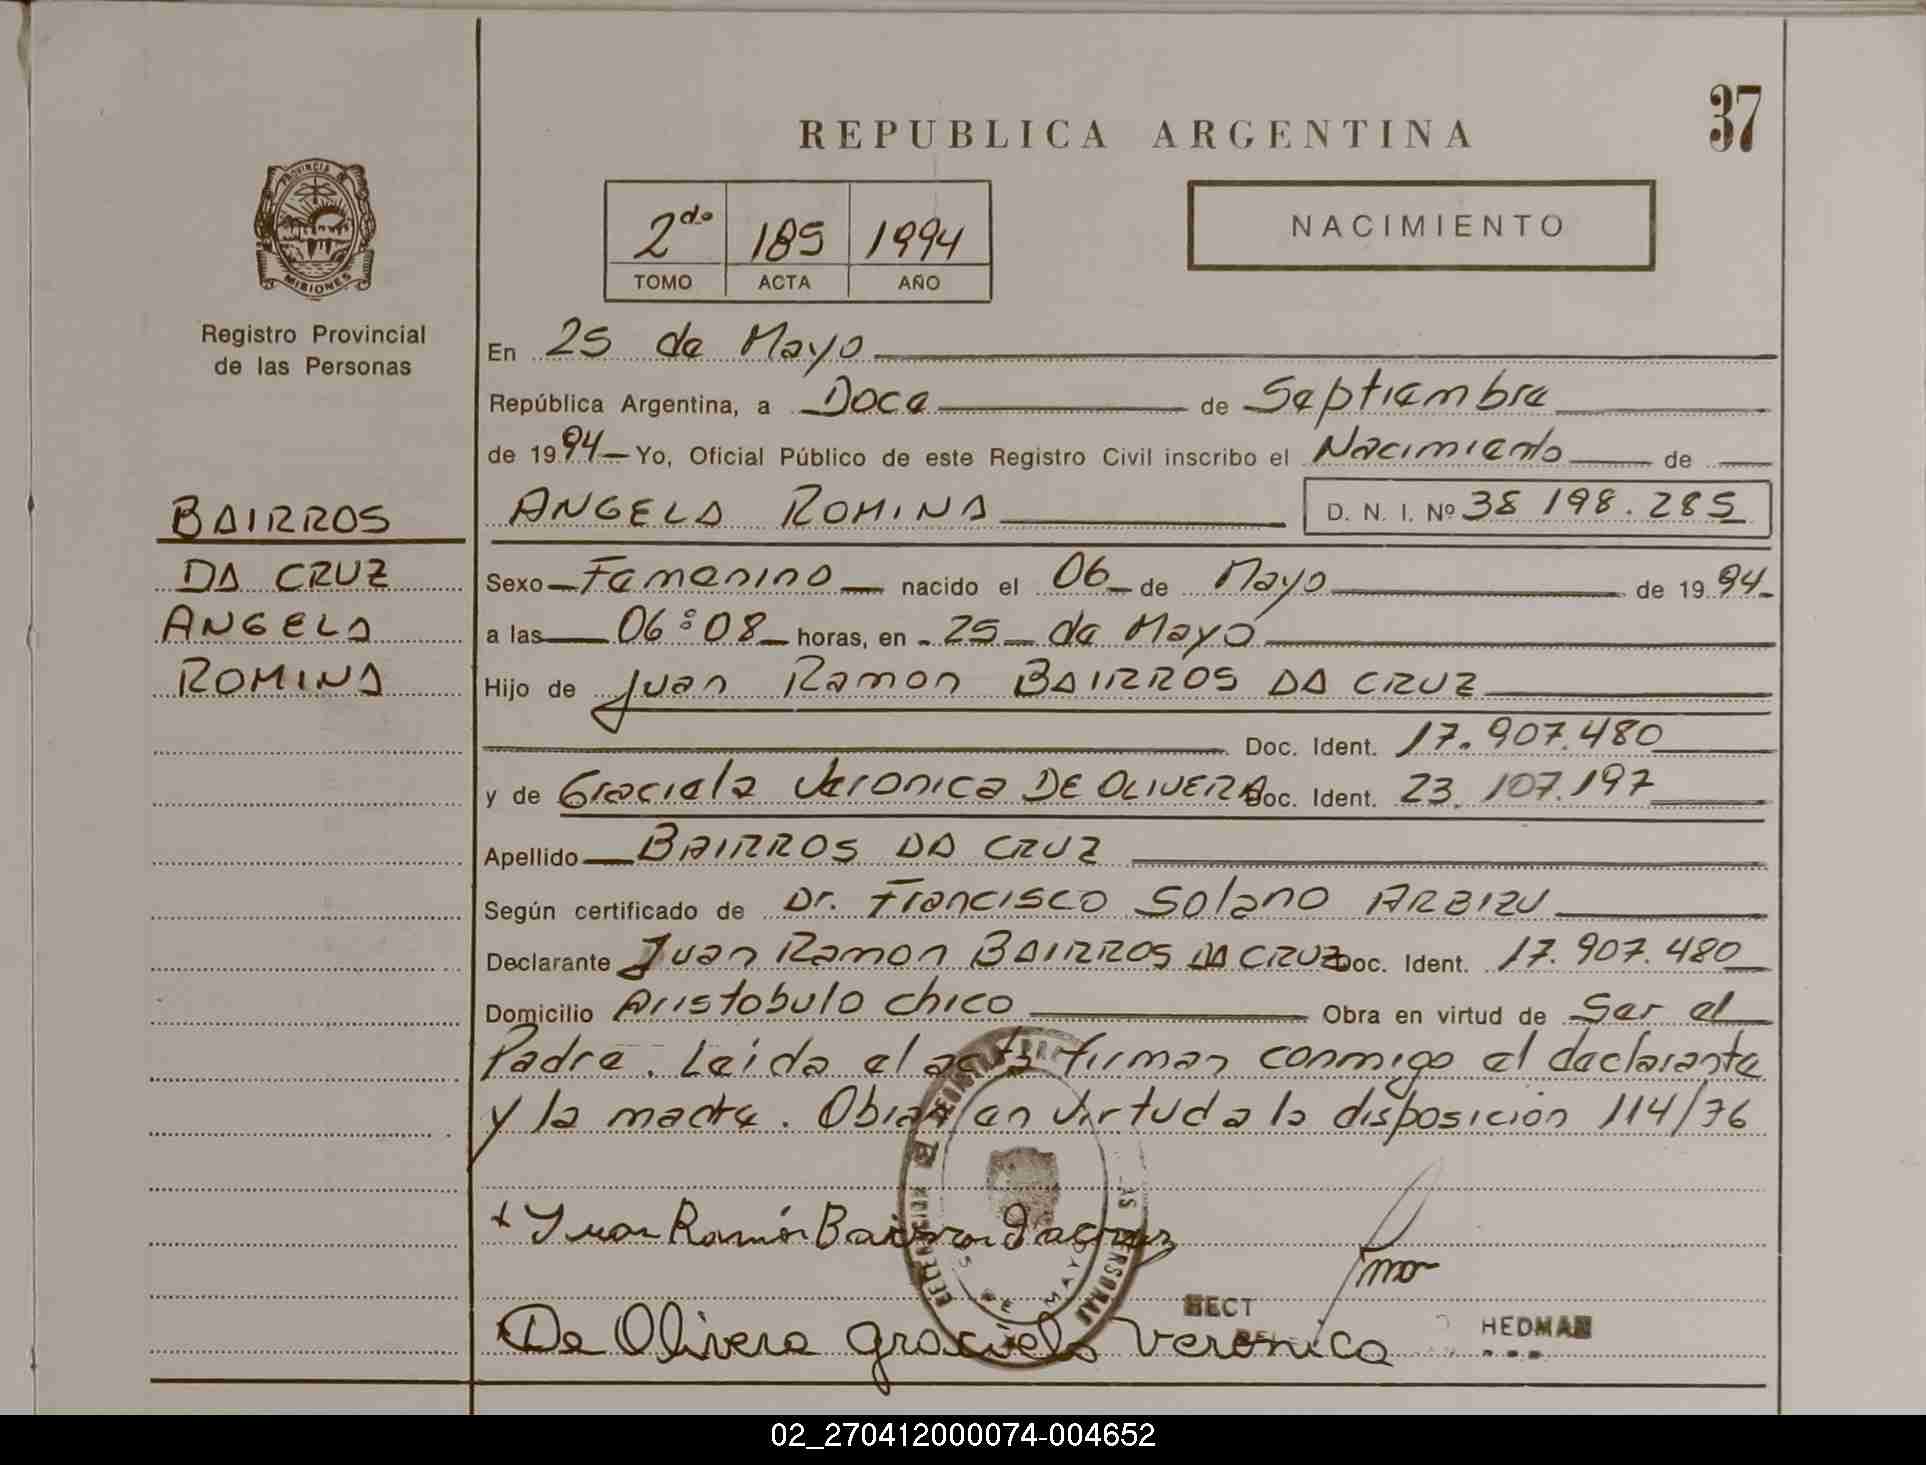 37
REPUBLICA ARGENTINA
PROVINCIA DE
MISIONES
Registro Provincial
de las Personas
2do 185 1994
TOMO ACTA AÑO
NACIMIENTO
En 25 de Mayo
República Argentina, a Doce de Septiembre
de 1994 Yo, Oficial Público de este Registro Civil inscribo el Nacimiento de
ANGELA ROMINA D. N. I. Nº 38 198.285
BAIRROS
DA CRUZ
ANGELA
ROMINA
Sexo Femenino nacido el 06 de Mayo de 1994
a las 06:08 horas, en 25 de Mayo
Hijo de Juan Ramon BAIRROS DA CRUZ
Doc. Ident. 17.907.480
y de Graciela Veronica DE OLIVERA Doc. Ident. 23.107.197
Apellido BAIRROS DA CRUZ
Según certificado de Dr. Francisco Solano ARBIZU
Declarante Juan Ramon BAIRROS DA CRUZ Doc. Ident. 17.907.480
Domicilio Aristobulo chico Obra en virtud de Ser el
Padre. Leida el acta firman conmigo el declarante
y la madre. Obran en virtud a la disposición 114/76
+ Juan Ramón Bairros Dacruz
De Olivera graciela Veronica
HECT HEDMAN
DE MAYO
02_270412000074-004652